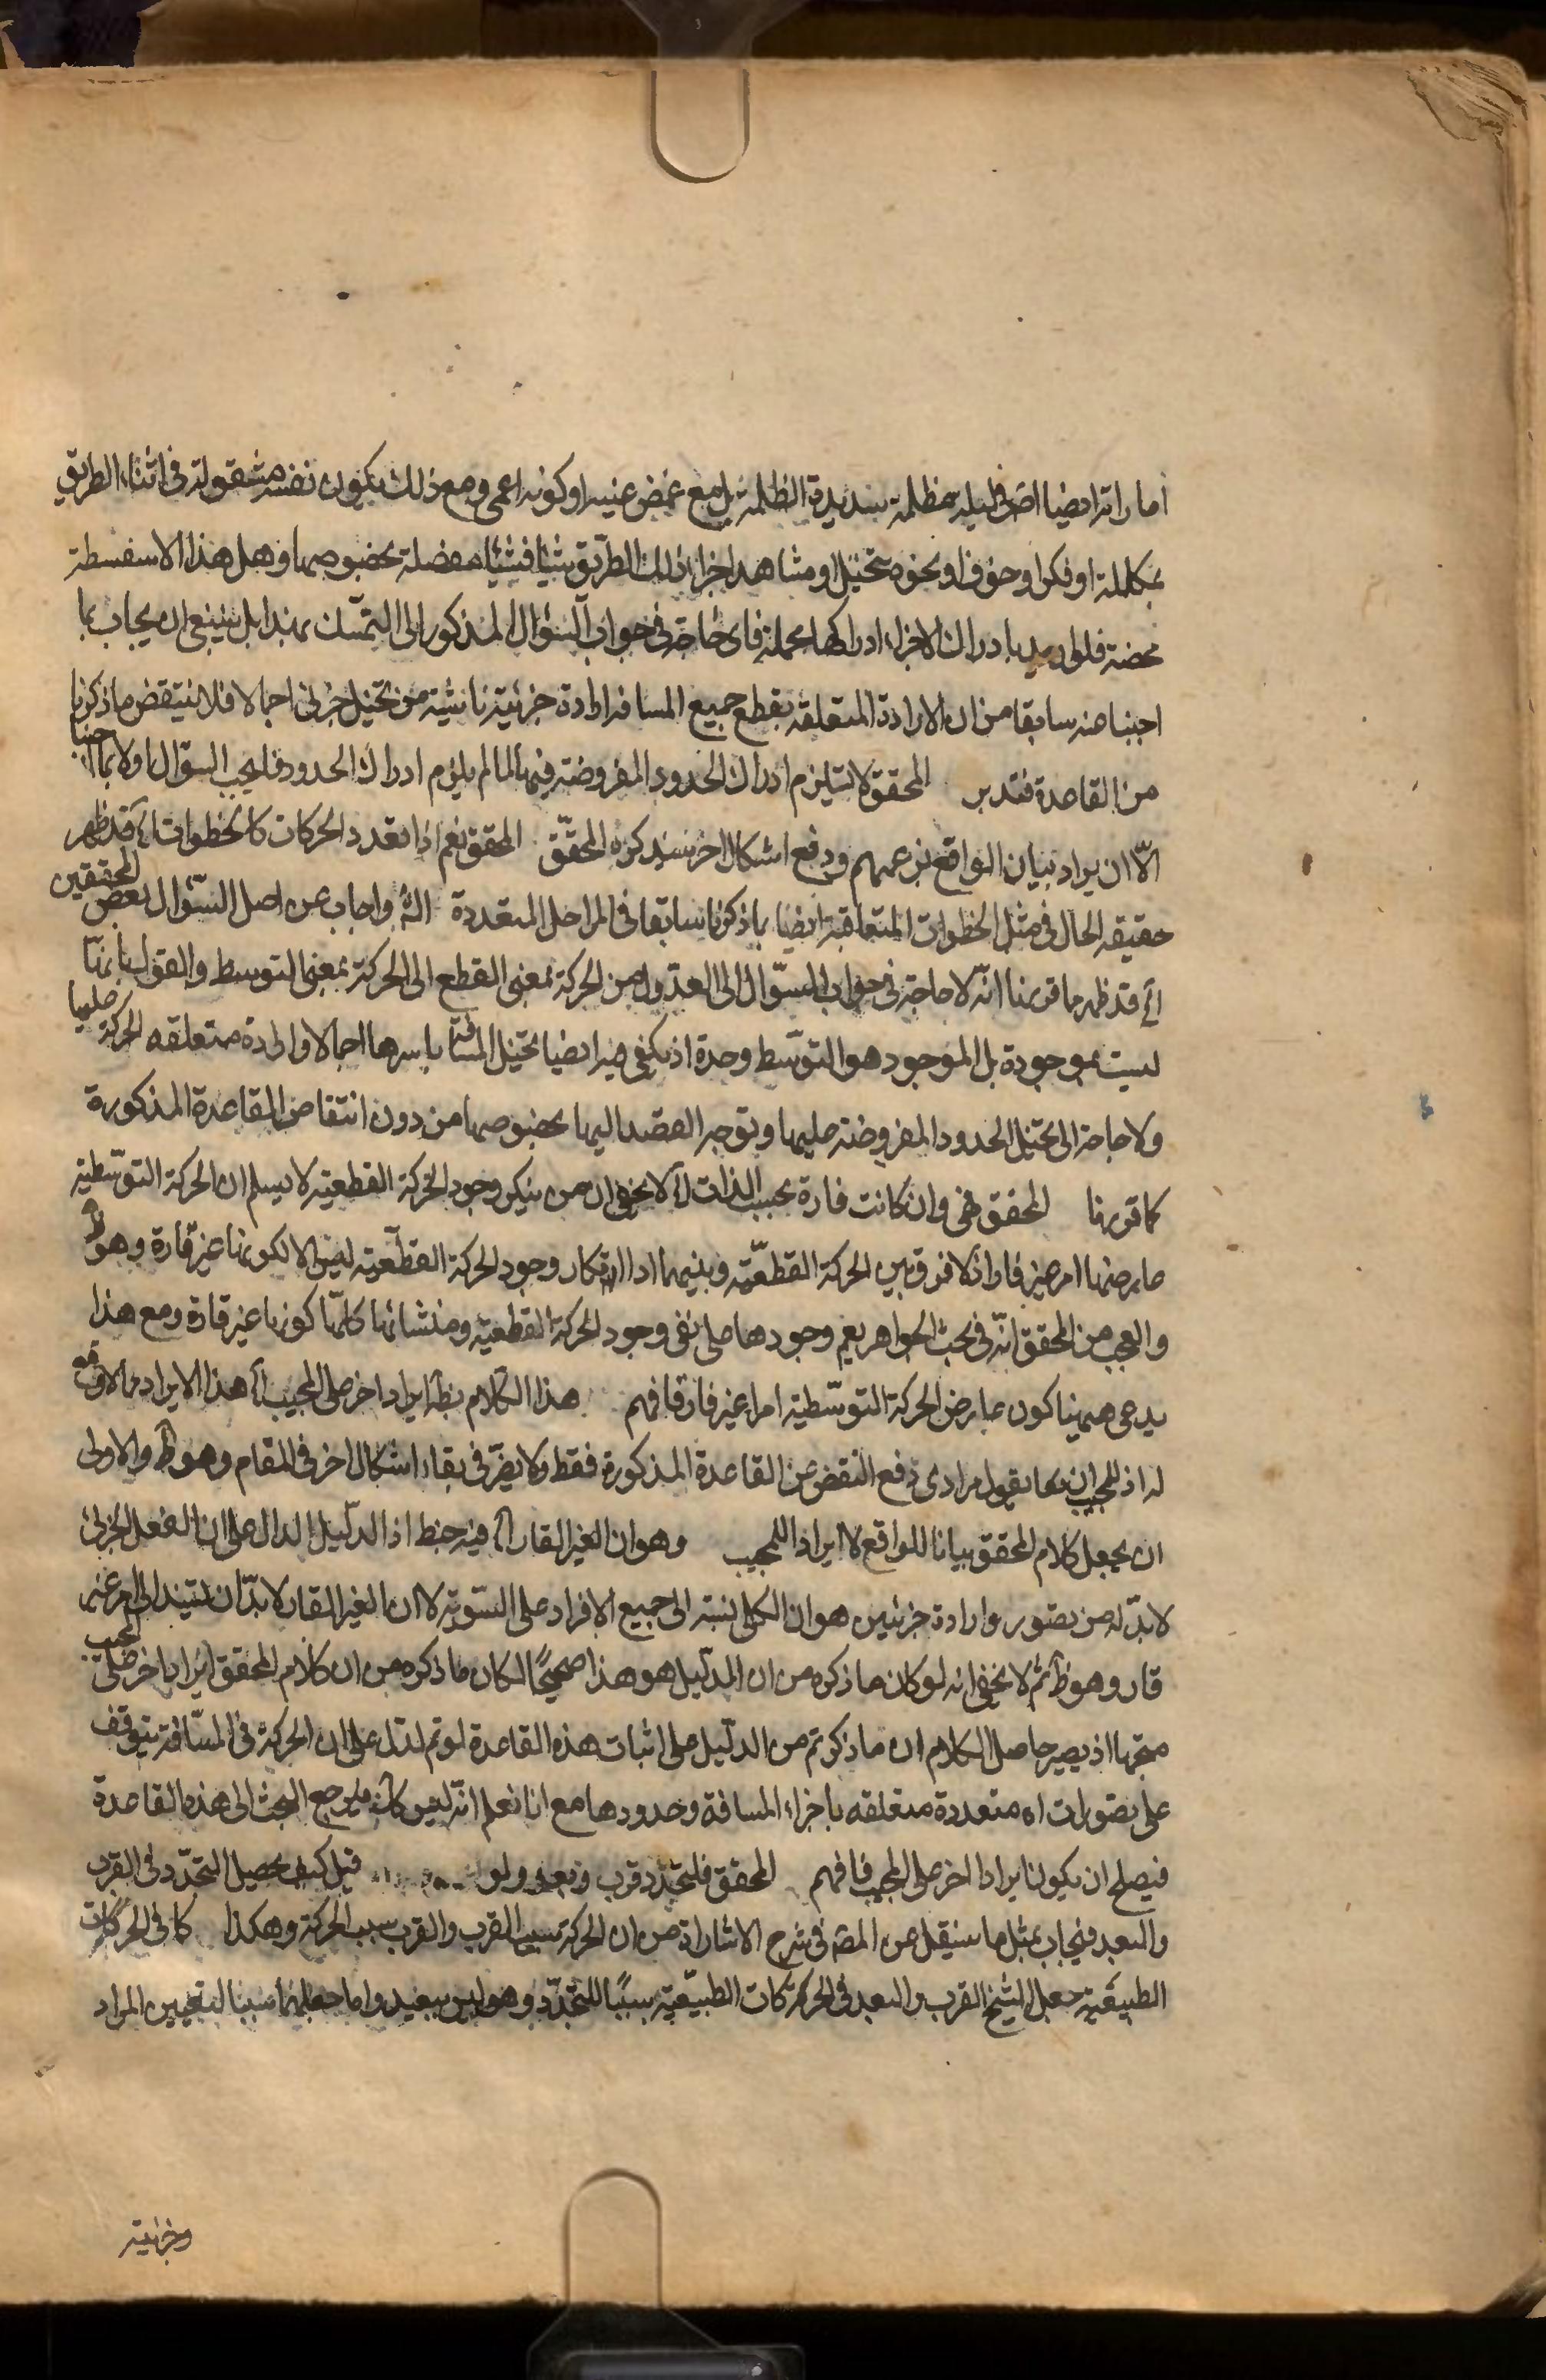 اما راته ايضا اخرى ليله مظلمة شديدة الظلمة بل مع غمض عينيه او كونه اعمى ومع ذلك يكون نفسه مشغولة فى اثناء الطريق
بمكالمة او فكر او خوف او نحوه يتخيل او مشاهد اجزاء ذلك الطريق شيئا فشيئا مفصلة بخصوصها وهل هذا الا سفسطة
محضة فلو اريد بادراك الاجزاء ادراكها مجملة فاى حاجة فى جواب السؤال المذكور الى التمسك بهذا بل ينبغى ان يجاب بما
اجبنا عنه سابقا من ان الارادة المتعلقة بقطع جميع المسافة ارادة جزئية ناشئة من تخيل جزئى اجمالا فلا ينتقض ما ذكرنا
من القاعدة فتدبر المحقق لا تستلزم ادراك الحدود المفروضة فيها لما لم يلزم ادراك الحدود فليجب السؤال اولا بما اجبنا
الا ان يراد بيان الواقع بزعمهم ودفع اشكال اخر سيذكره المحقق المحقق نعم اذا تعدد الحركات كالخطوات اه قد ظهر
حقيقه الحال فى مثل الخطوات المتعاقبة ايضا بما ذكرنا سابقا فى المراحل المتعددة الش واجاب عن اصل السؤال بعض المحققين
اه قد ظهر مما قررنا انه لا حاجة فى جواب السؤال الى العدول من الحركة بمعنى القطع الى الحركة بمعنى التوسط والقول بانها
ليست بموجودة بل الموجود هو التوسط وحدة اذ يكفى فيه ايضا تخيل المسافة باسرها اجمالا وارادة متعلقه الحركة عليها
ولا حاجة الى تخيل الحدود المفروضة عليها وتوجه القصد اليها بخصوصها من دون انتقاض القاعدة المذكورة
كما قررنا المحقق فهى وان كانت قارة بحسب الذات اه لا يخفى ان من ينكر وجود الحركة القطعية لا يسلم ان الحركة التوسطية
عارضها امر غير قار اذ لا فرق بين الحركة القطعية وبينها اذ انكار وجود الحركة القطعية ليس الا لكونها غير قارة وهو ظ
والعجب من المحقق انه فى بحث الجواهر يقم وجودها على نفى وجود الحركة القطعية ومنشائها كلها كونها غير قارة ومع هذا
يدعى ههنا كون عارض الحركة التوسطية امرا غير قار فافهم هذا الكلام بظ ايراد اخر على المجيب اه هذا الايراد مما لا وقع
له اذ للمجيب ان يقول مرادى دفع النقض عن القاعدة المذكورة فقط ولا يضر فى بقاء اشكال اخر فى المقام وهو ظ والاولى
ان يجعل كلام المحقق بيانا للواقع لا ايرادا للمجيب وهو ان الغير القار اه فيه خبط اذ الدليل الدال على ان الفعل الجزئى
لابد له من تصور وارادة جزئيين هو ان الكلى نسبته الى جميع الافراد على السوية لا ان الغير القار لابد ان يستند الى امر غير
قار وهو ظ ثم لا يخفى انه لو كان ما ذكره من ان الدليل هو هذا صحيحا لكان ما ذكره من ان كلام المحقق ايراد اخر على المجيب
متجها اذ يصير حاصل الكلام ان ما ذكرتم من الدليل على اثبات هذه القاعدة لو تم لدل على ان الحركة فى المسافة يتوقف
على تصورات اه متعددة متعلقه باجزاء المسافة وحدودها مع انا نعلم انه ليس كك فلم يرجع البحث الى هذه القاعدة
فيصلح ان يكون ايرادا اخر على المجيب فافهم المحقق فلتجدد قرب وبعد ولو قيل كيف يحصل التجدد فى القرب
والبعد فيجاب بمثل ما سينقل عن المص فى شرح الاشارات من ان الحركة سبب القرب والقرب سبب الحركة وهكذا كما فى الحركات
الطبيعية جعل الشيخ القرب والبعد فى الحركات الطبيعية سببا للتجدد وهو ليس ببعيد واما جعلهما سببا لتعيين المراد
وجزئية